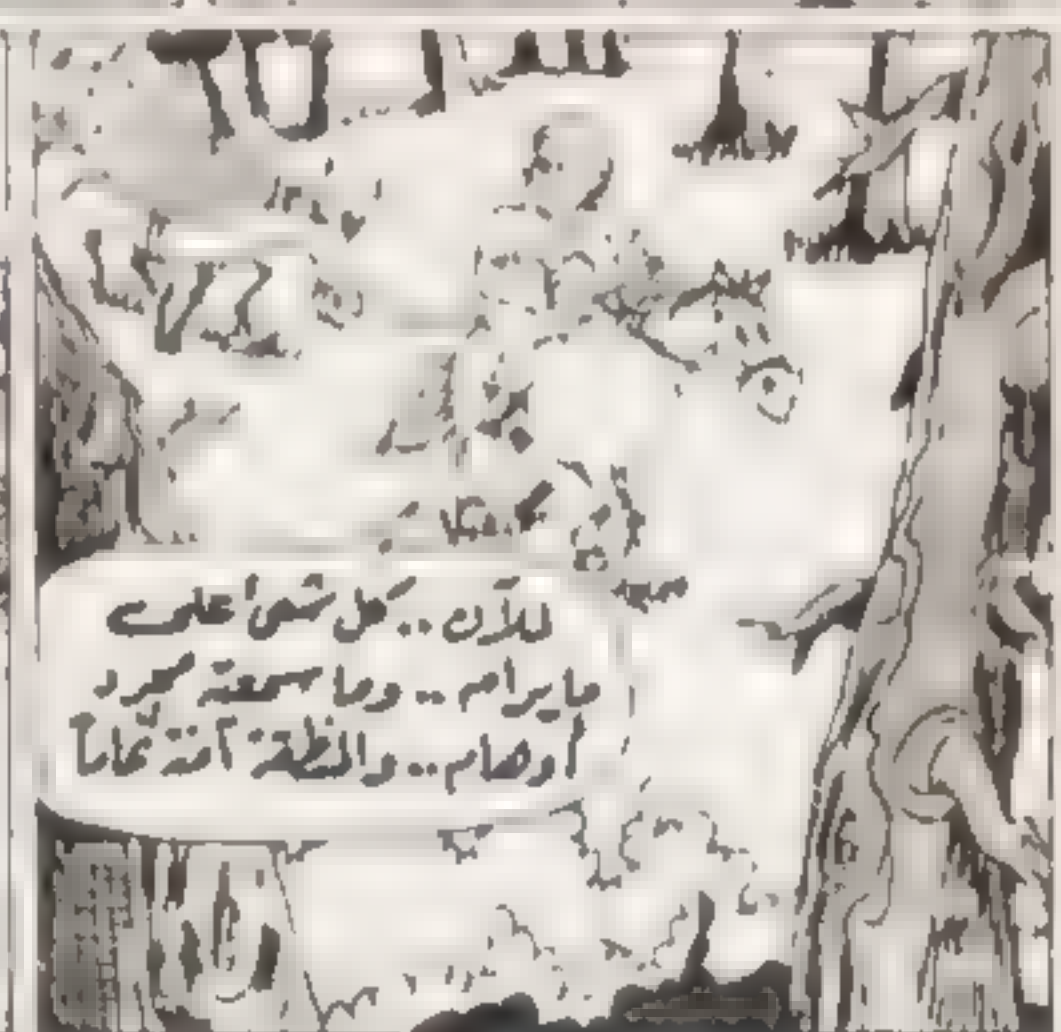 للآن .. كل شئ على
ما يرام .. وما سمعته مجرد
أوهام .. والمنطقة آمنة تماماً